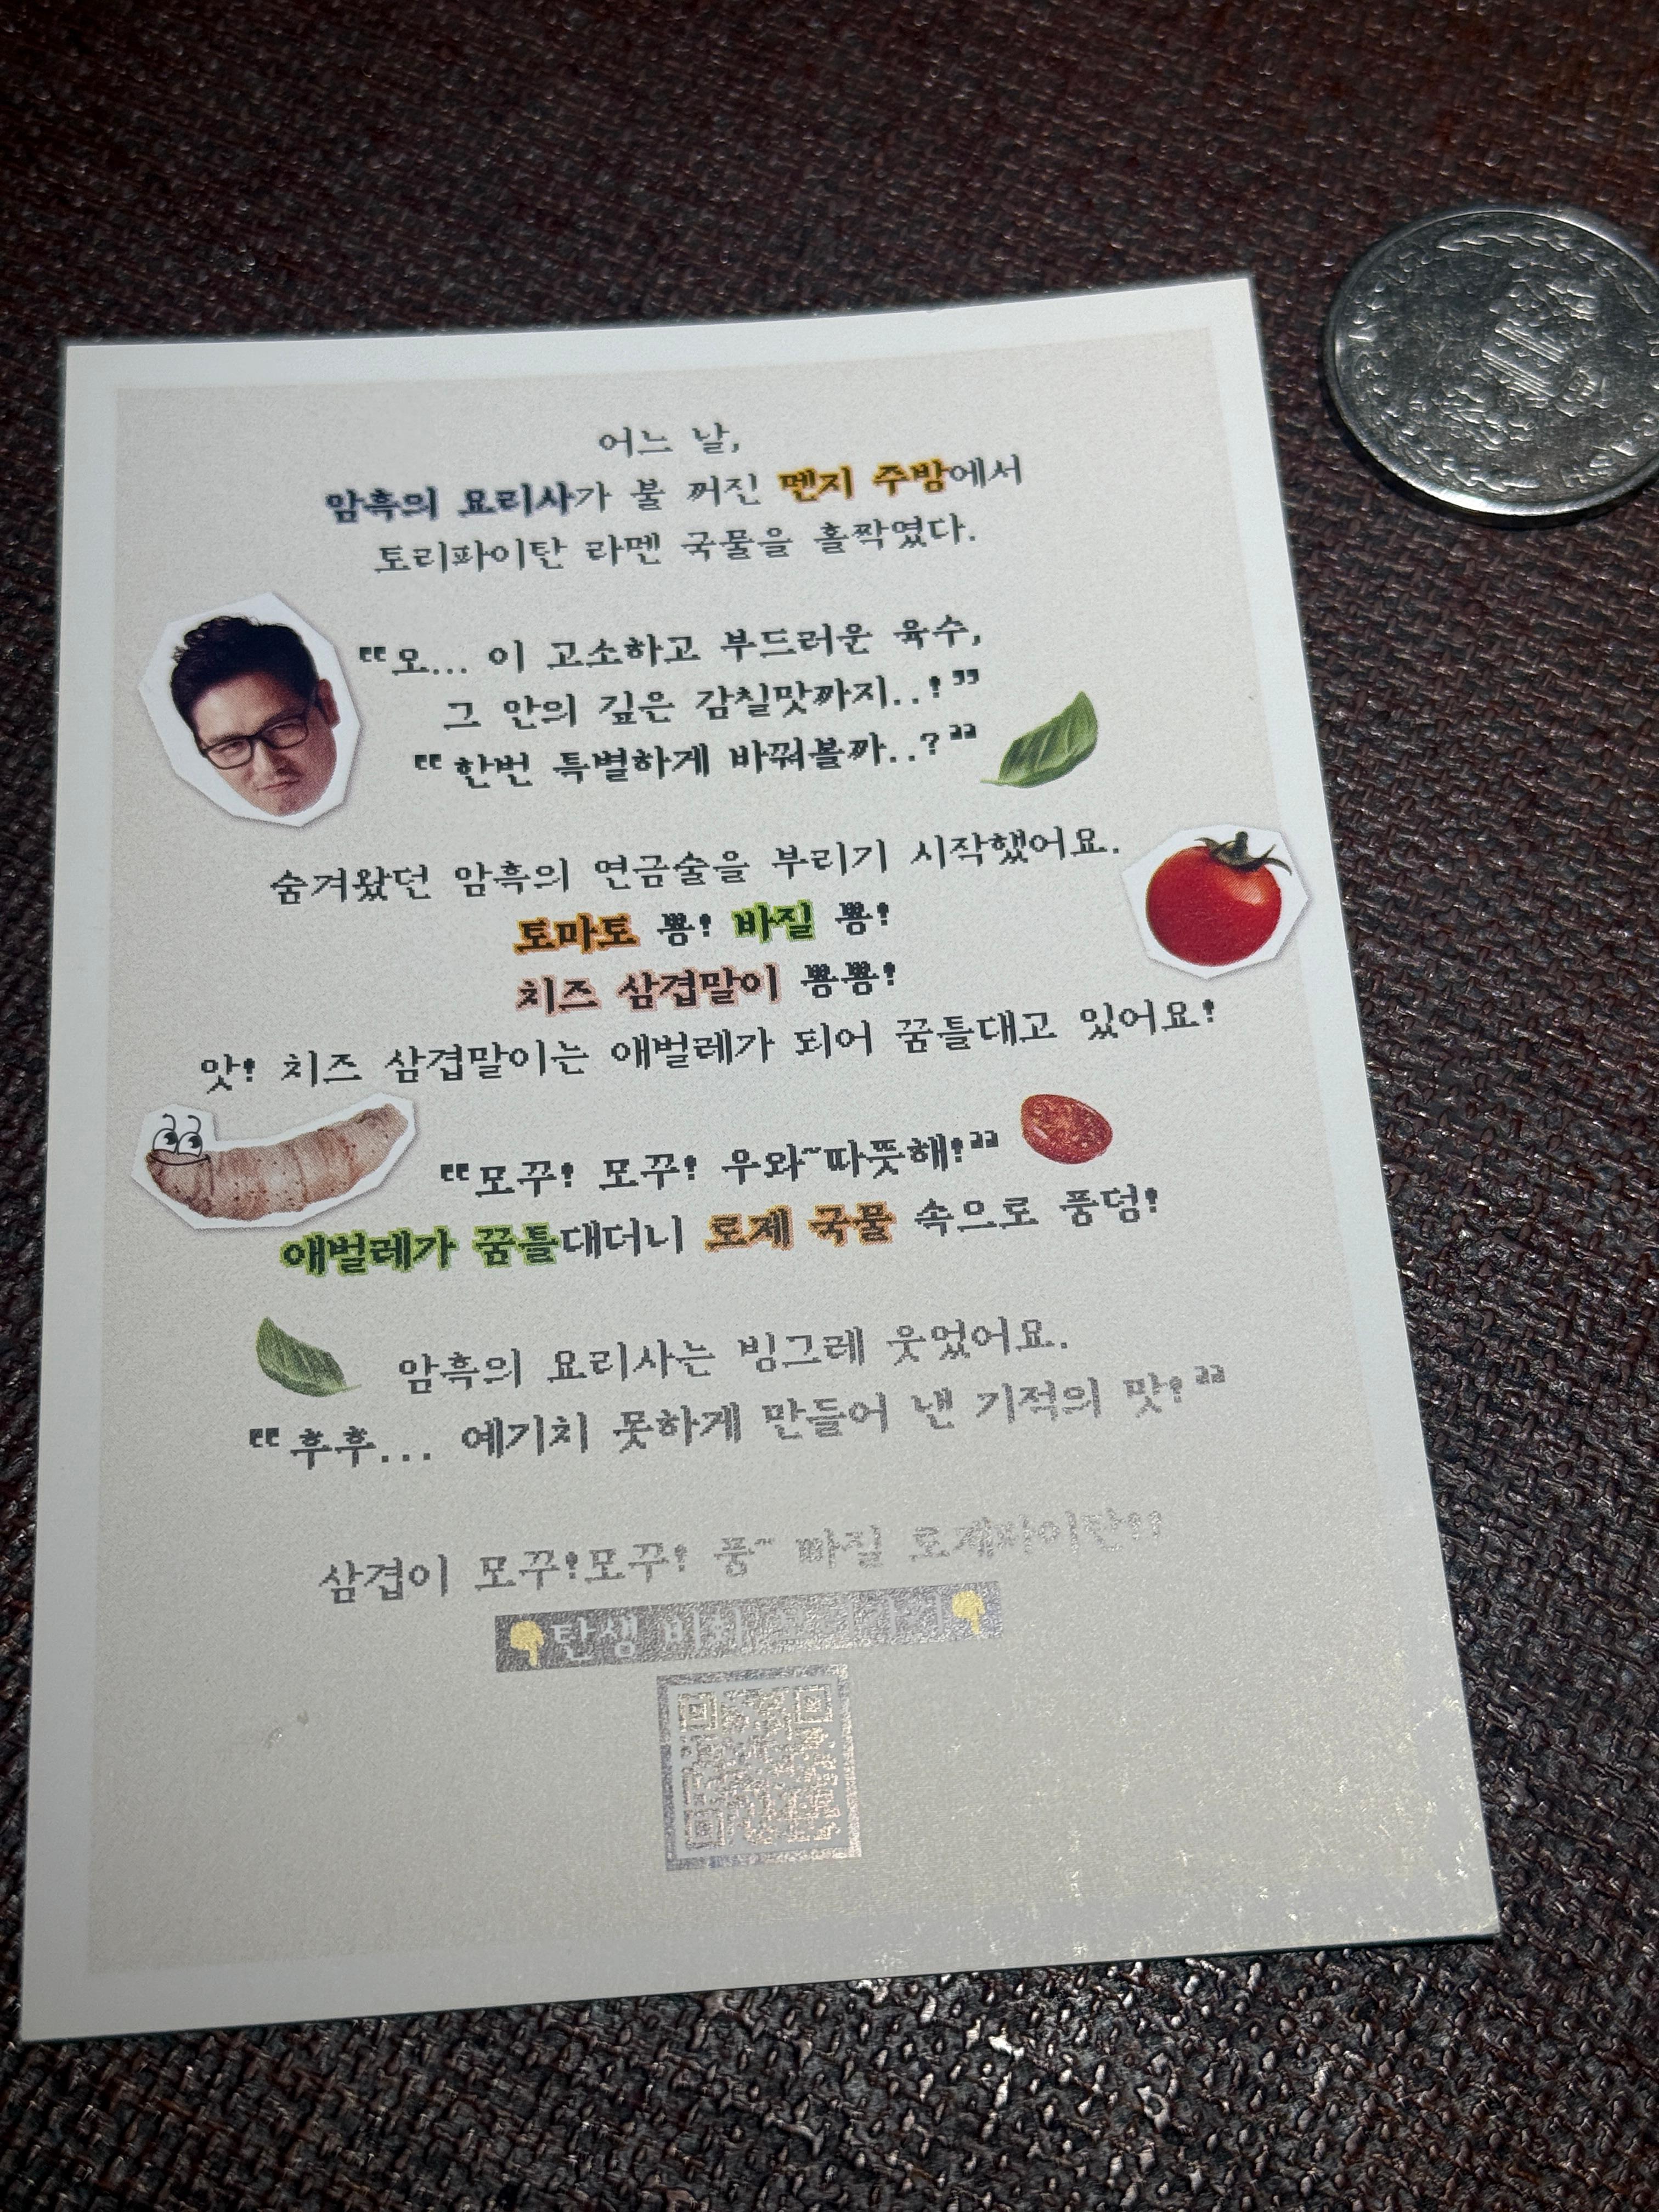 어느 날,
암흑의 요리사가 불 꺼진 멘지 주방에서
토리파이탄 라멘 국물을 홀짝였다.
"오... 이 고소하고 부드러운 육수,
그 안의 깊은 감칠맛까지..!"
"한번 특별하게 바꿔볼까..?"
숨겨왔던 암흑의 연금술을 부리기 시작했어요.
토마토 뿅! 바질 뿅!
치즈 삼겹말이 뿅뿅!
앗! 치즈 삼겹말이는 애벌레가 되어 꿈틀대고 있어요!
"모꾸! 모꾸! 우와~따뜻해!"
애벌레가 꿈틀대더니 로제 국물 속으로 풍덩!
암흑의 요리사는 빙그레 웃었어요.
"후후... 예기치 못하게 만들어 낸 기적의 맛!"
삼겹이 모꾸!모꾸! 풍~ 빠질 로제파이탄!!
👇탄생 비화 👇